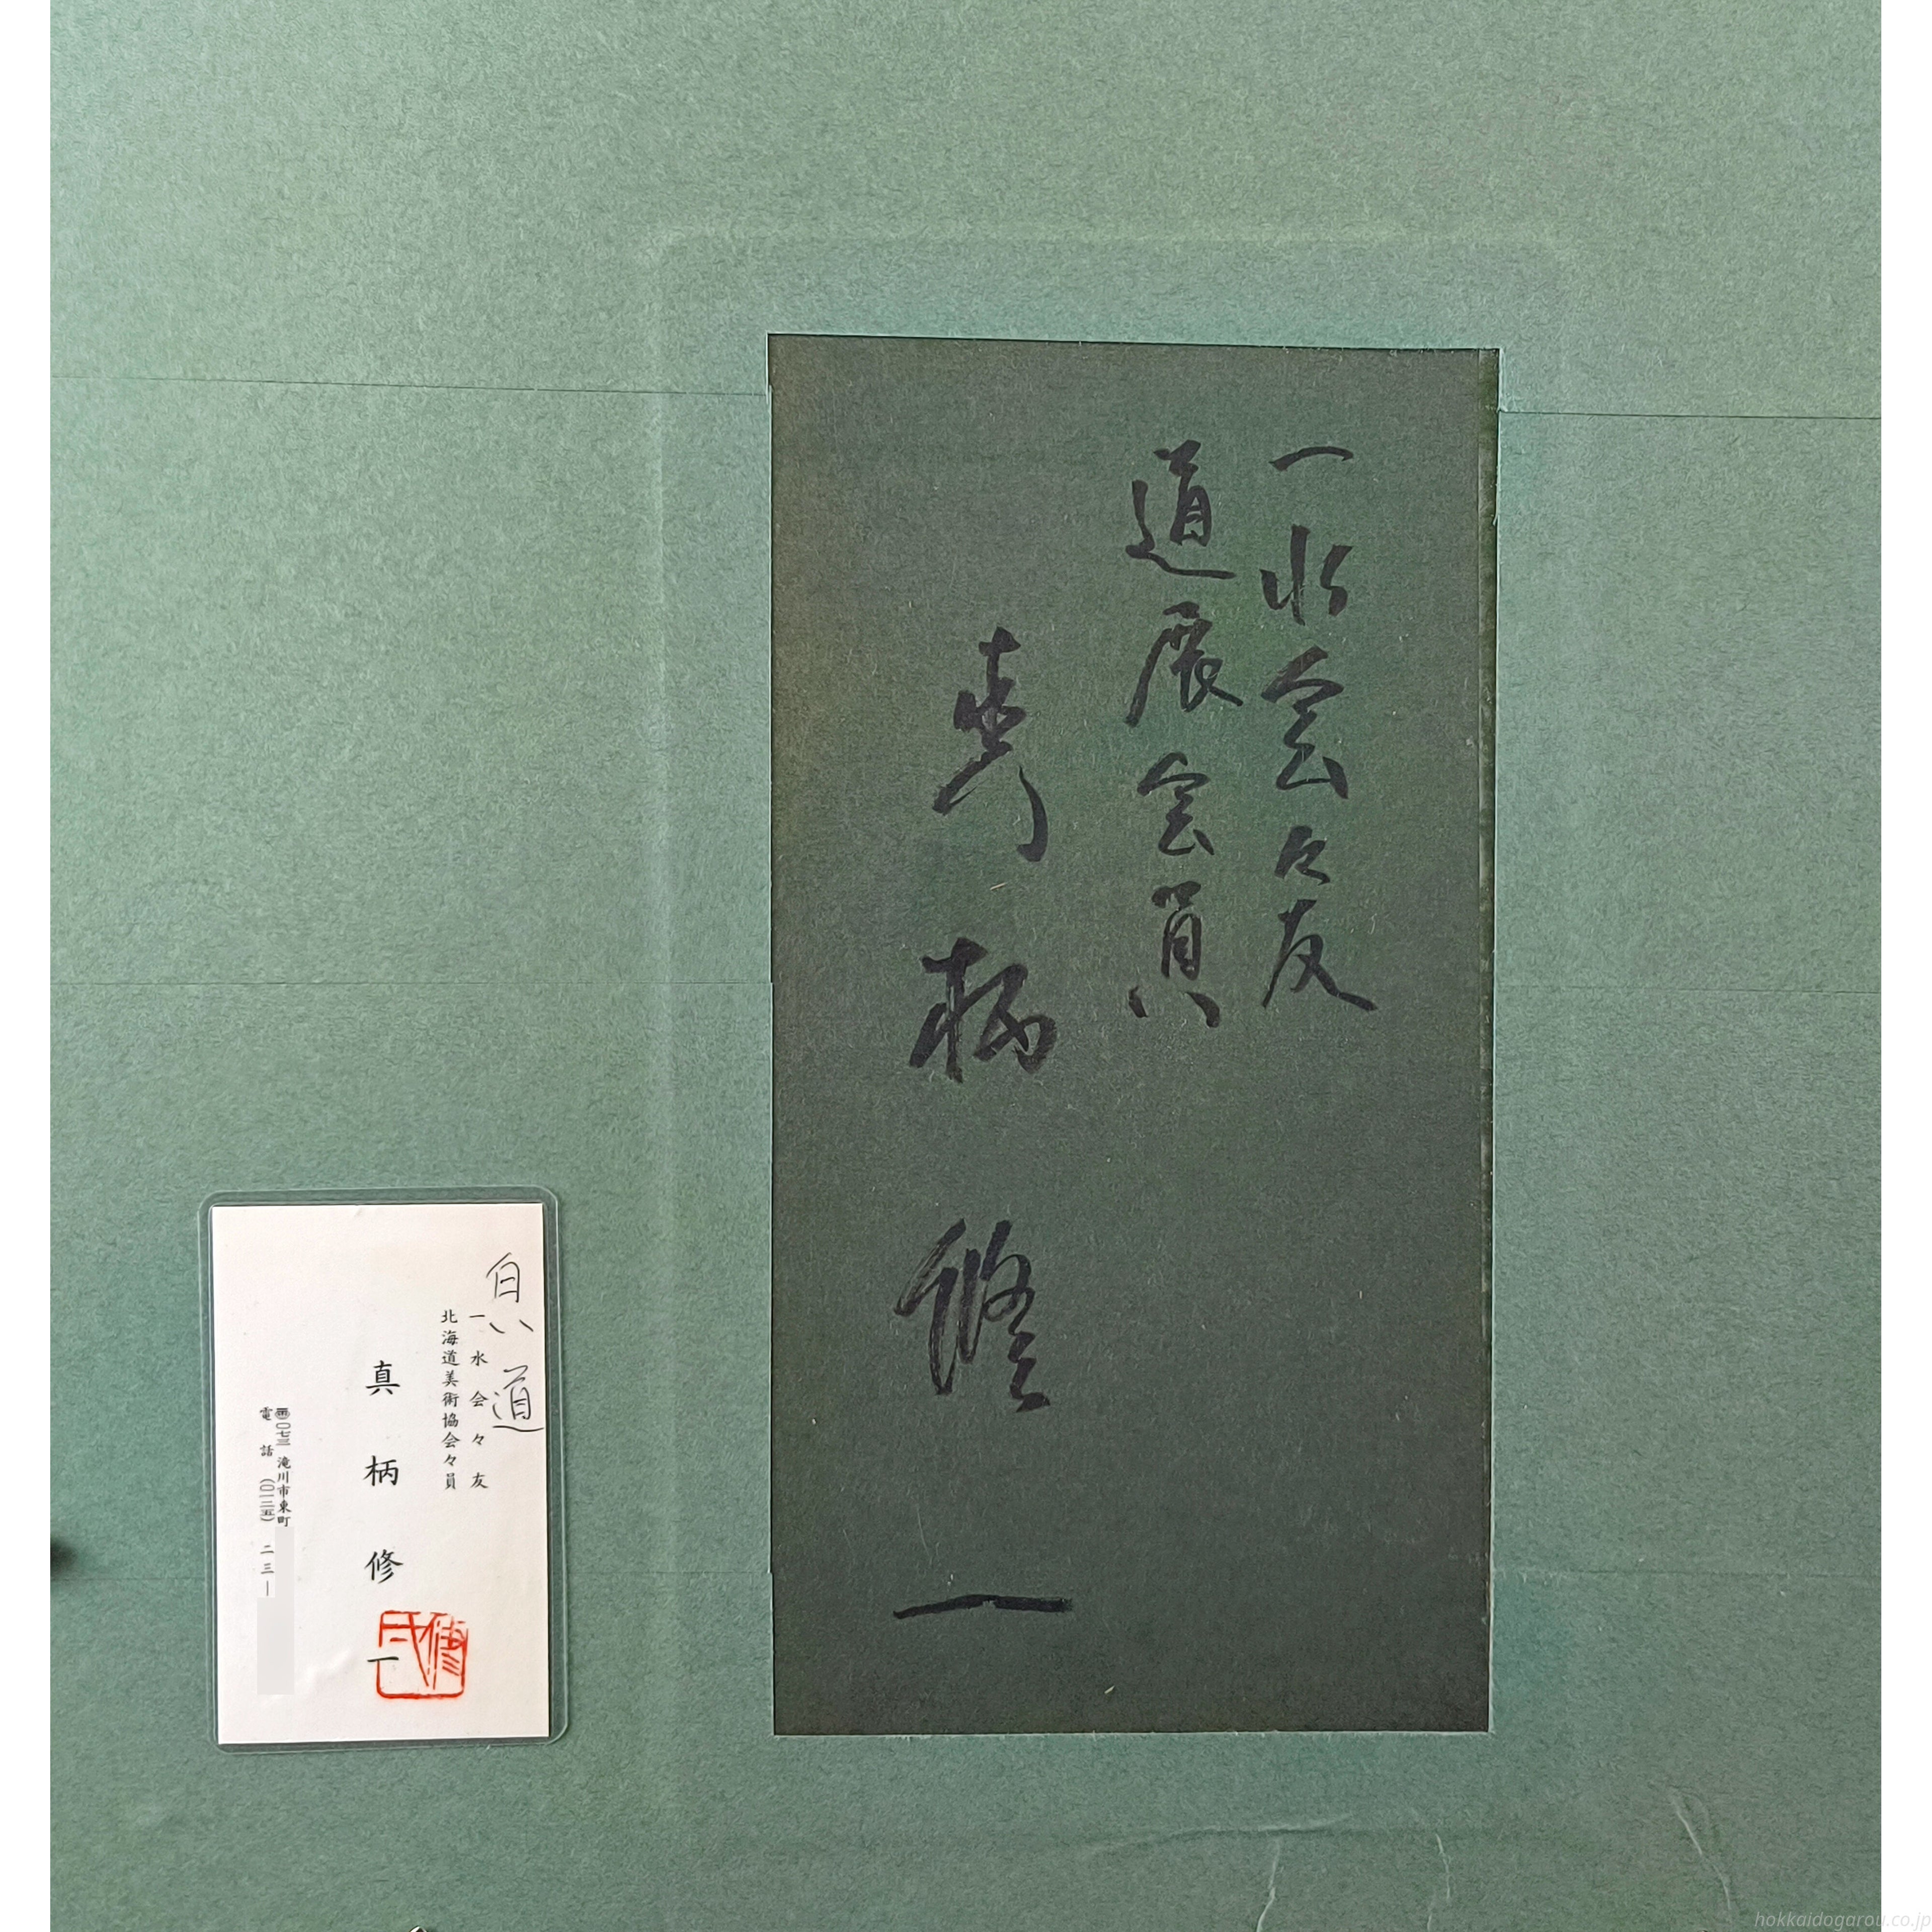 一水会々友
道展会員
真柄修一
息い道
一水会々友
北海道美術協会々員
真柄修一
〇七三 滝川市東町
電話 (〇一二五) 二三―
hokkaidogarou.co.jp